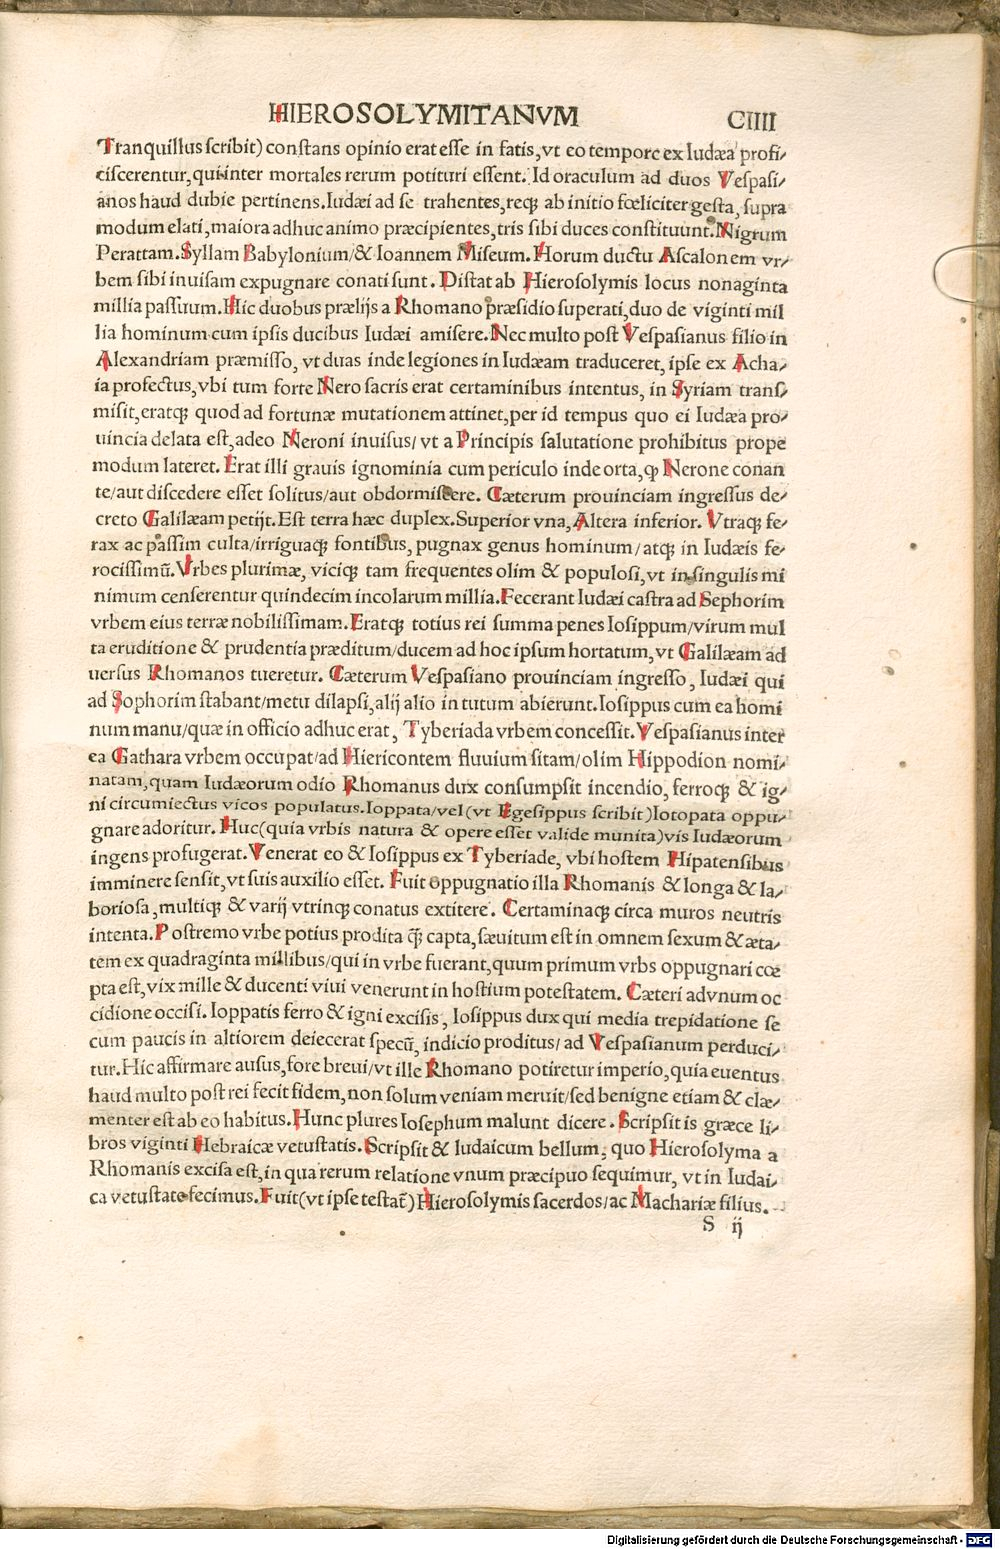 HIEROSOLYMITANVM CIIII
Tranquillus scribit) constans opinio erat esse in fatis, vt eo tempore ex Iudæa profi⸗
ciscerentur, qui inter mortales rerum potituri essent. Id oraculum ad duos Vespasi⸗
anos haud dubie pertinens. Iudæi ad se trahentes, reqꝫ ab initio fœliciter gesta, supra
modum elati, maiora adhuc animo præcipientes, tris sibi duces constituunt. Nigrum
Perattam. Syllam Babylonium/ & Ioannem Miseum. Horum ductu Ascalonem vr⸗
bem sibi inuisam expugnare conati sunt. Distat ab Hierosolymis locus nonaginta
millia passuum. Hic duobus prælijs a Rhomano præsidio superati, duo de viginti mil
lia hominum cum ipsis ducibus Iudæi amisere. Nec multo post Vespasianus filio in
Alexandriam præmisso, vt duas inde legiones in Iudæam traduceret, ipse ex Acha⸗
ia profectus, vbi tum forte Nero sacris erat certaminibus intentus, in Syriam trans⸗
misit, eratqꝫ quod ad fortunæ mutationem attinet, per id tempus quo ei Iudæa pro⸗
uincia delata est, adeo Neroni inuisus/ vt a Principis salutatione prohibitus prope
modum lateret. Erat illi grauis ignominia cum periculo inde orta, ꝙ Nerone conan
te/ aut discedere esset solitus/ aut obdormiscere. Cæterum prouinciam ingressus de⸗
creto Galilæam petijt. Est terra hæc duplex. Superior vna, Altera inferior. Vtraqꝫ fe⸗
rax ac passim culta/ irriguaqꝫ fontibus, pugnax genus hominum/ atqꝫ in Iudæis fe⸗
rocissimū. Vrbes plurimæ, viciqꝫ tam frequentes olim & populosi, vt in singulis mi
nimum censerentur quindecim incolarum millia. Fecerant Iudæi castra ad Sephorim
vrbem eius terræ nobilissimam. Eratqꝫ totius rei summa penes Iosippum/ virum mul
ta eruditione & prudentia præditum/ ducem ad hoc ipsum hortatum, vt Galilæam ad
uersus Rhomanos tueretur. Cæterum Vespasiano prouinciam ingresso, Iudæi qui
ad Sophorim stabant/ metu dilapsi, alij alio in tutum abierunt. Iosippus cum ea homi
num manu/ quæ in officio adhuc erat, Tyberiada vrbem concessit. Vespasianus inter
ea Gathara vrbem occupat/ ad Hiericontem fluuium sitam/ olim Hippodion nomi⸗
natam, quam Iudæorum odio Rhomanus dux consumpsit incendio, ferroqꝫ & ig⸗
ni circumiectus vicos populatus. Ioppata/ vel (vt Egesippus scribit) Iotopata oppu⸗
gnare adoritur. Huc (quia vrbis natura & opere esset valide munita) vis Iudæorum
ingens profugerat. Venerat eo & Iosippus ex Tyberiade, vbi hostem Hipatensibus
imminere sensit, vt suis auxilio esset. Fuit oppugnatio illa Rhomanis & longa & la⸗
boriosa, multiqꝫ & varij vtrinqꝫ conatus extitere. Certaminaqꝫ circa muros neutris
intenta. Postremo vrbe potius prodita qꝫ̄ capta, sæuitum est in omnem sexum & æta⸗
tem ex quadraginta millibus/ qui in vrbe fuerant, quum primum vrbs oppugnari cœ
pta est, vix mille & ducenti viui venerunt in hostium potestatem. Cæteri advnum oc
cidione occisi. Ioppatis ferro & igni excisis, Iosippus dux qui media trepidatione se
cum paucis in altiorem deiecerat specū, indicio proditus/ ad Vespasianum perduci⸗
tur. Hic affirmare ausus, fore breui/ vt ille Rhomano potiretur imperio, quia euentus
haud multo post rei fecit fidem, non solum veniam meruit/ sed benigne etiam & clæ⸗
menter est ab eo habitus. Hunc plures Iosephum malunt dicere. Scripsit is græce li⸗
bros viginti Hebraicæ vetustatis. Scripsit & Iudaicum bellum, quo Hierosolyma a
Rhomanis excisa est, in qua rerum relatione vnum præcipuo sequimur, vt in Iudai⸗
ca vetustate fecimus. Fuit (vt ipse testat̄) Hierosolymis sacerdos/ ac Machariæ filius.
S ij
Digitalisierung gefördert durch die Deutsche Forschungsgemeinschaft - DFG